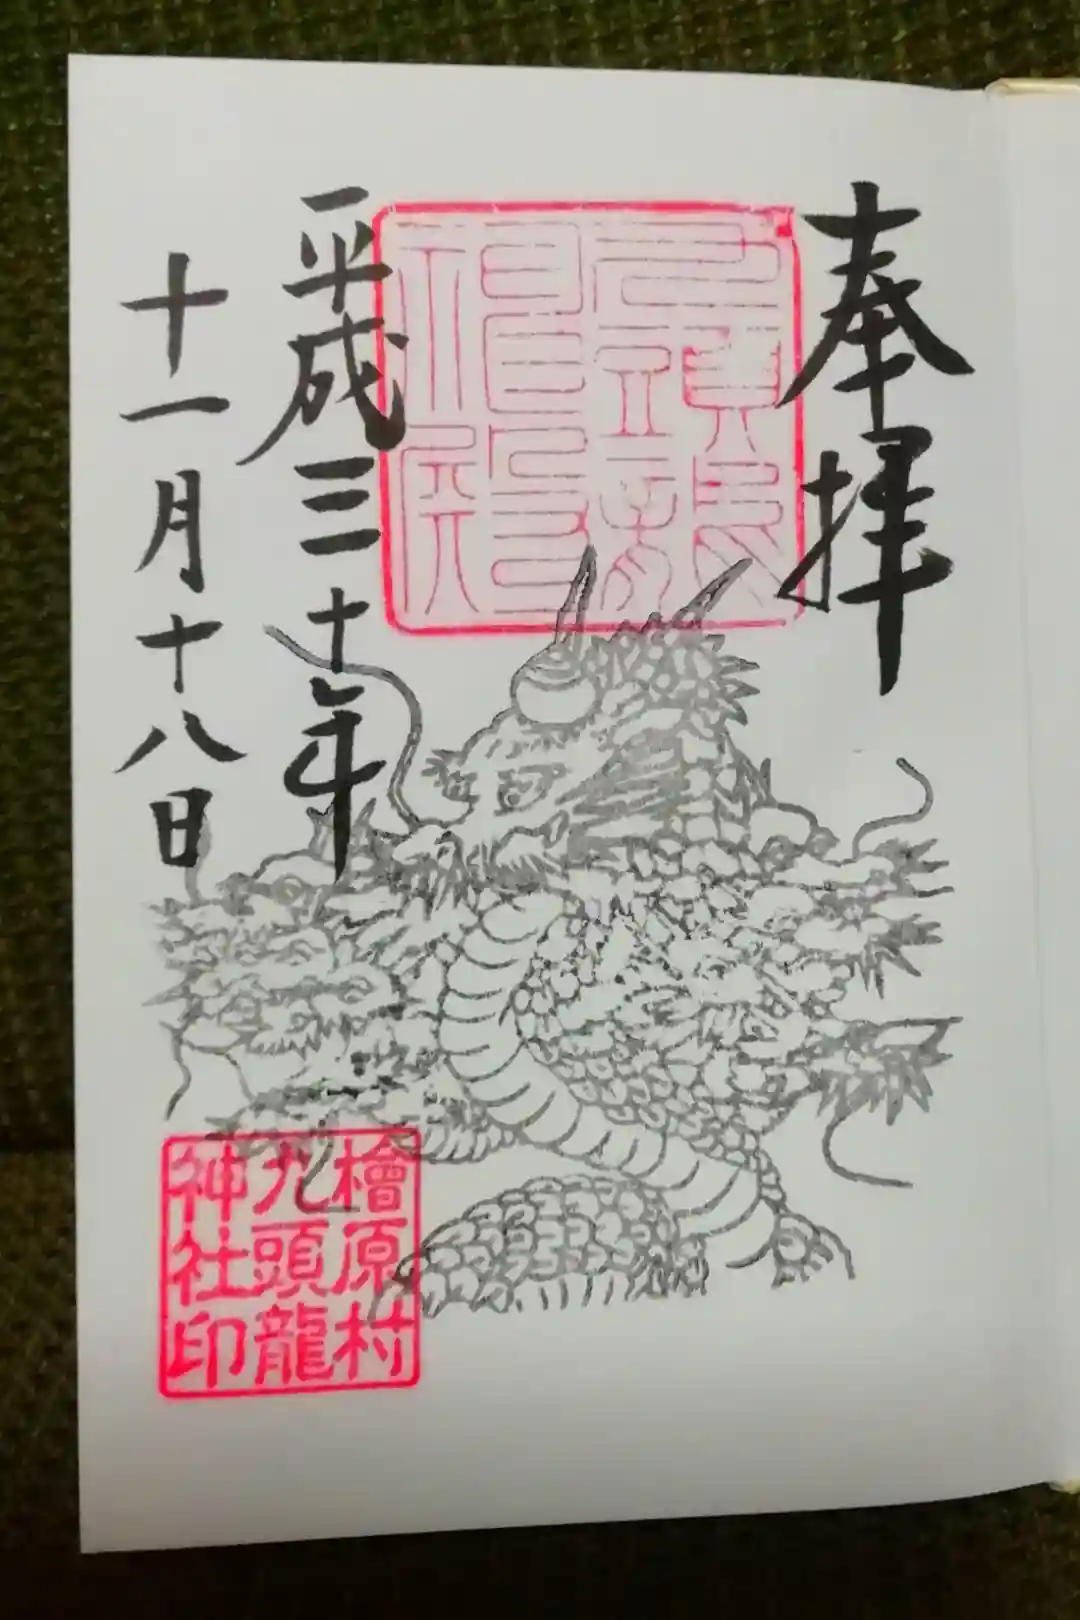 奉拝
平成三十年
十一月十八日
檜原村
九頭龍
神社印